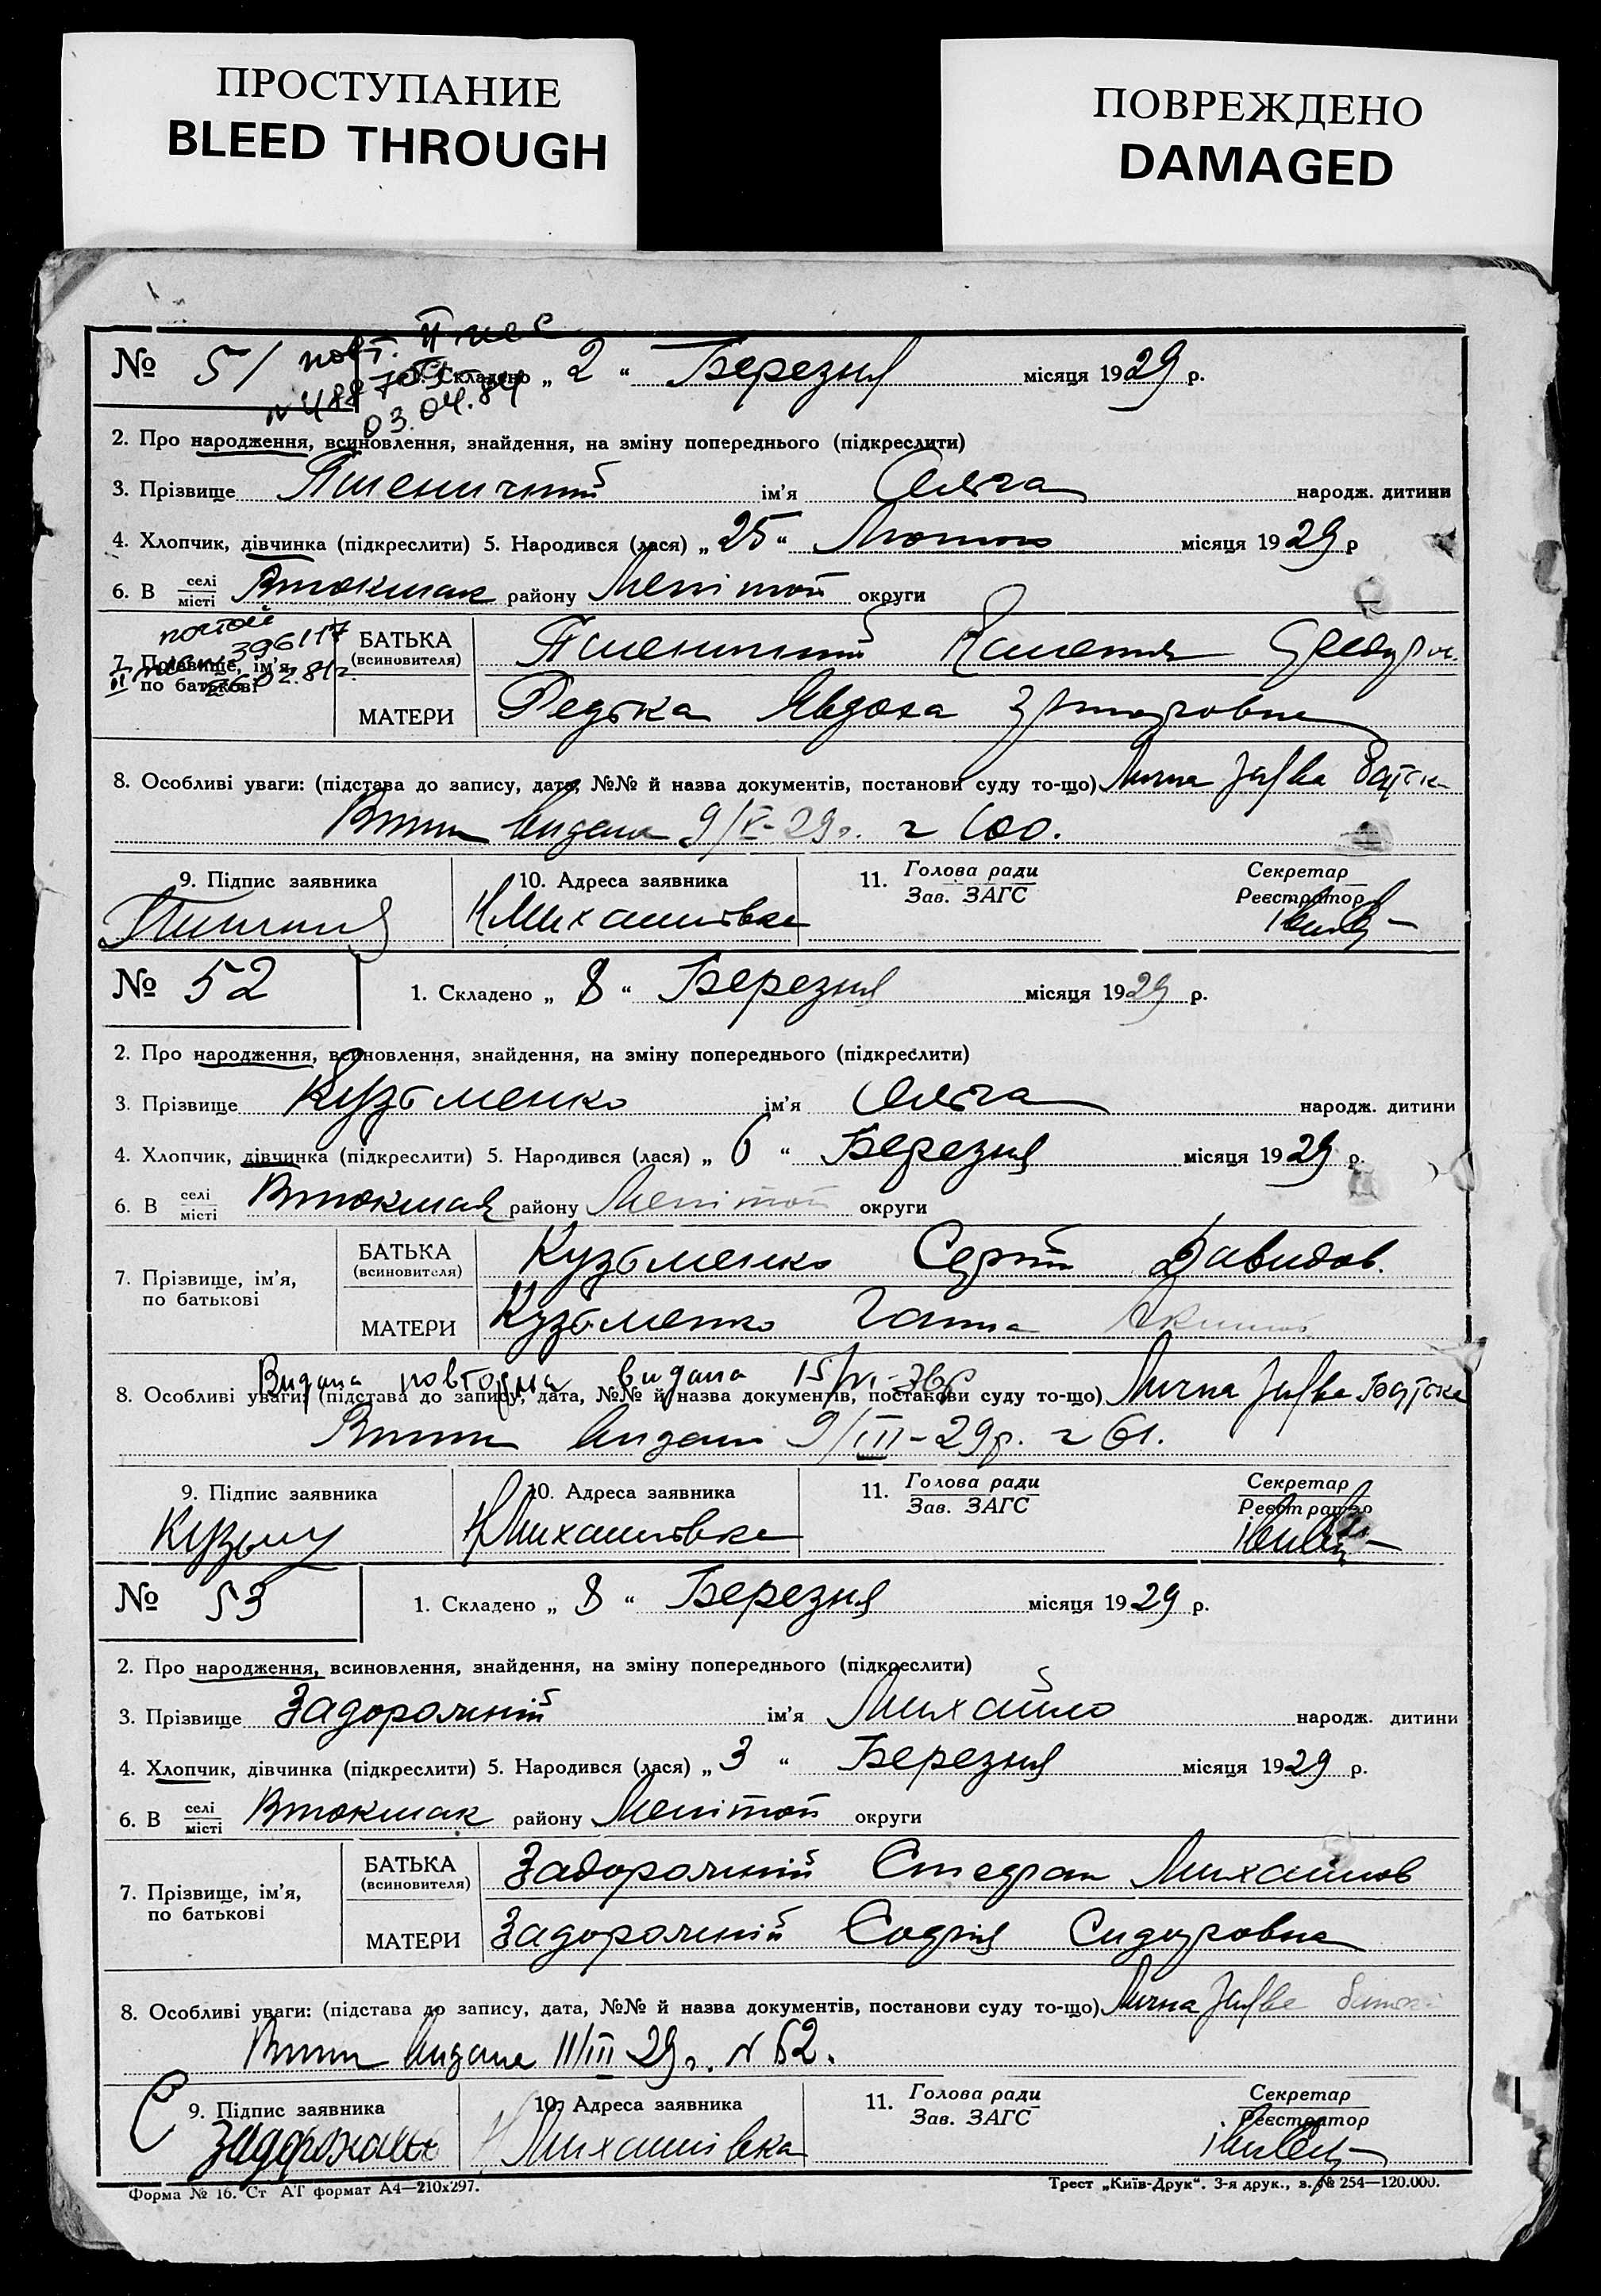 ПРОСТУПАНИЕ
BLEED THROUGH
ПОВРЕЖДЕНО
DAMAGED
повт.
№ 51 1. Складено „ 2 “ Березня місяця 1929 р.
03.04.84
2. Про народження, всиновлення, знайдення, на зміну попереднього (підкреслити)
3. Прізвище Пшеничний ім'я Ольга народж. дитини
4. Хлопчик, дівчинка (підкреслити) 5. Народився (лася) „ 25 “ Лютого місяця 1929 р
6. В селі місті Втокмак району Меліпот округи
396117
7. Прізвище, ім'я, по батькові
БАТЬКА (всиновителя) Пшеничний
МАТЕРИ Редька Явдоха
8. Особливі уваги: (підстава до запису, дата, №№ й назва документів, постанови суду то-що) Лична батька
видана 9/ 29р.
9. Підпис заявника 10. Адреса заявника 11. Голова ради Зав. ЗАГС Секретар Реєстратор
Н Михайлівка
№ 52 1. Складено „ 8 “ Березня місяця 1929 р.
2. Про народження, всиновлення, знайдення, на зміну попереднього (підкреслити)
3. Прізвище Кузьменко ім'я Ольга народж. дитини
4. Хлопчик, дівчинка (підкреслити) 5. Народився (лася) „ 6 “ Березня місяця 1929 р.
6. В селі місті Втокмак району Меліпот округи
7. Прізвище, ім'я, по батькові
БАТЬКА (всиновителя) Кузьменко Сергій Давидов.
МАТЕРИ Кузьменко Ганна
Видана повторна видана 15/VI-36р
8. Особливі уваги: (підстава до запису, дата, №№ й назва документів, постанови суду то-що) Лична батька
видана 9/III-29р. № 61.
9. Підпис заявника 10. Адреса заявника 11. Голова ради Зав. ЗАГС Секретар Реєстратор
Н Михайлівка
№ 53 1. Складено „ 8 “ Березня місяця 1929 р.
2. Про народження, всиновлення, знайдення, на зміну попереднього (підкреслити)
3. Прізвище Задорожній ім'я Михайло народж. дитини
4. Хлопчик, дівчинка (підкреслити) 5. Народився (лася) „ 3 “ Березня місяця 1929 р.
6. В селі місті Втокмак району Меліпот округи
7. Прізвище, ім'я, по батькові
БАТЬКА (всиновителя) Задорожній Стефан Михайлов
МАТЕРИ Задорожній Софія Сидоровна
8. Особливі уваги: (підстава до запису, дата, №№ й назва документів, постанови суду то-що) Лична
видана 11/III 29р. № 62.
9. Підпис заявника 10. Адреса заявника 11. Голова ради Зав. ЗАГС Секретар Реєстратор
Н Михайлівка
Форма № 16. Ст АТ формат А4—210x297. Трест „Київ-Друк“. 3-я друк., в. № 254—120.000.